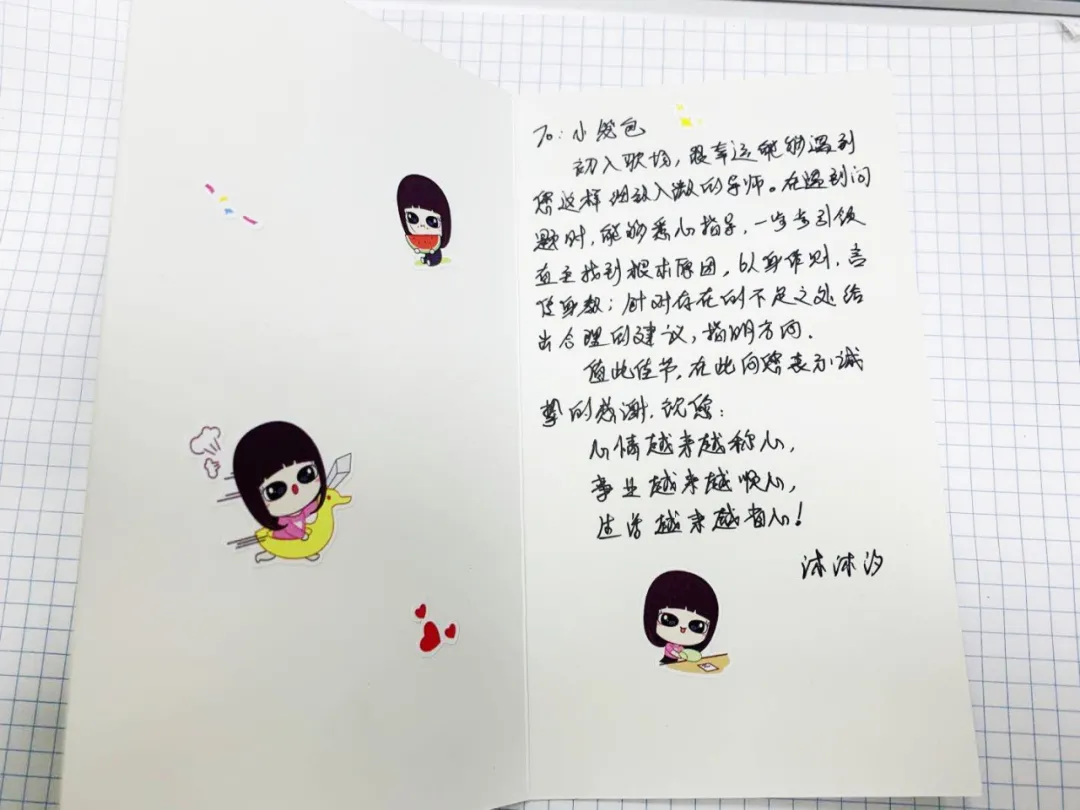 To: 小笼包
初入职场,很幸运能够遇到
您这样细致入微的导师。在遇到问
题时,能够悉心指导,一步步引领
直至找到根本原因,以身作则,言
传身教;针对存在的不足之处给
出合理的建议,指明方向.
值此佳节,在此向您表示诚
挚的感谢.祝您:
心情越来越称心,
事业越来越顺心,
生活越来越省心!
沐沐汐